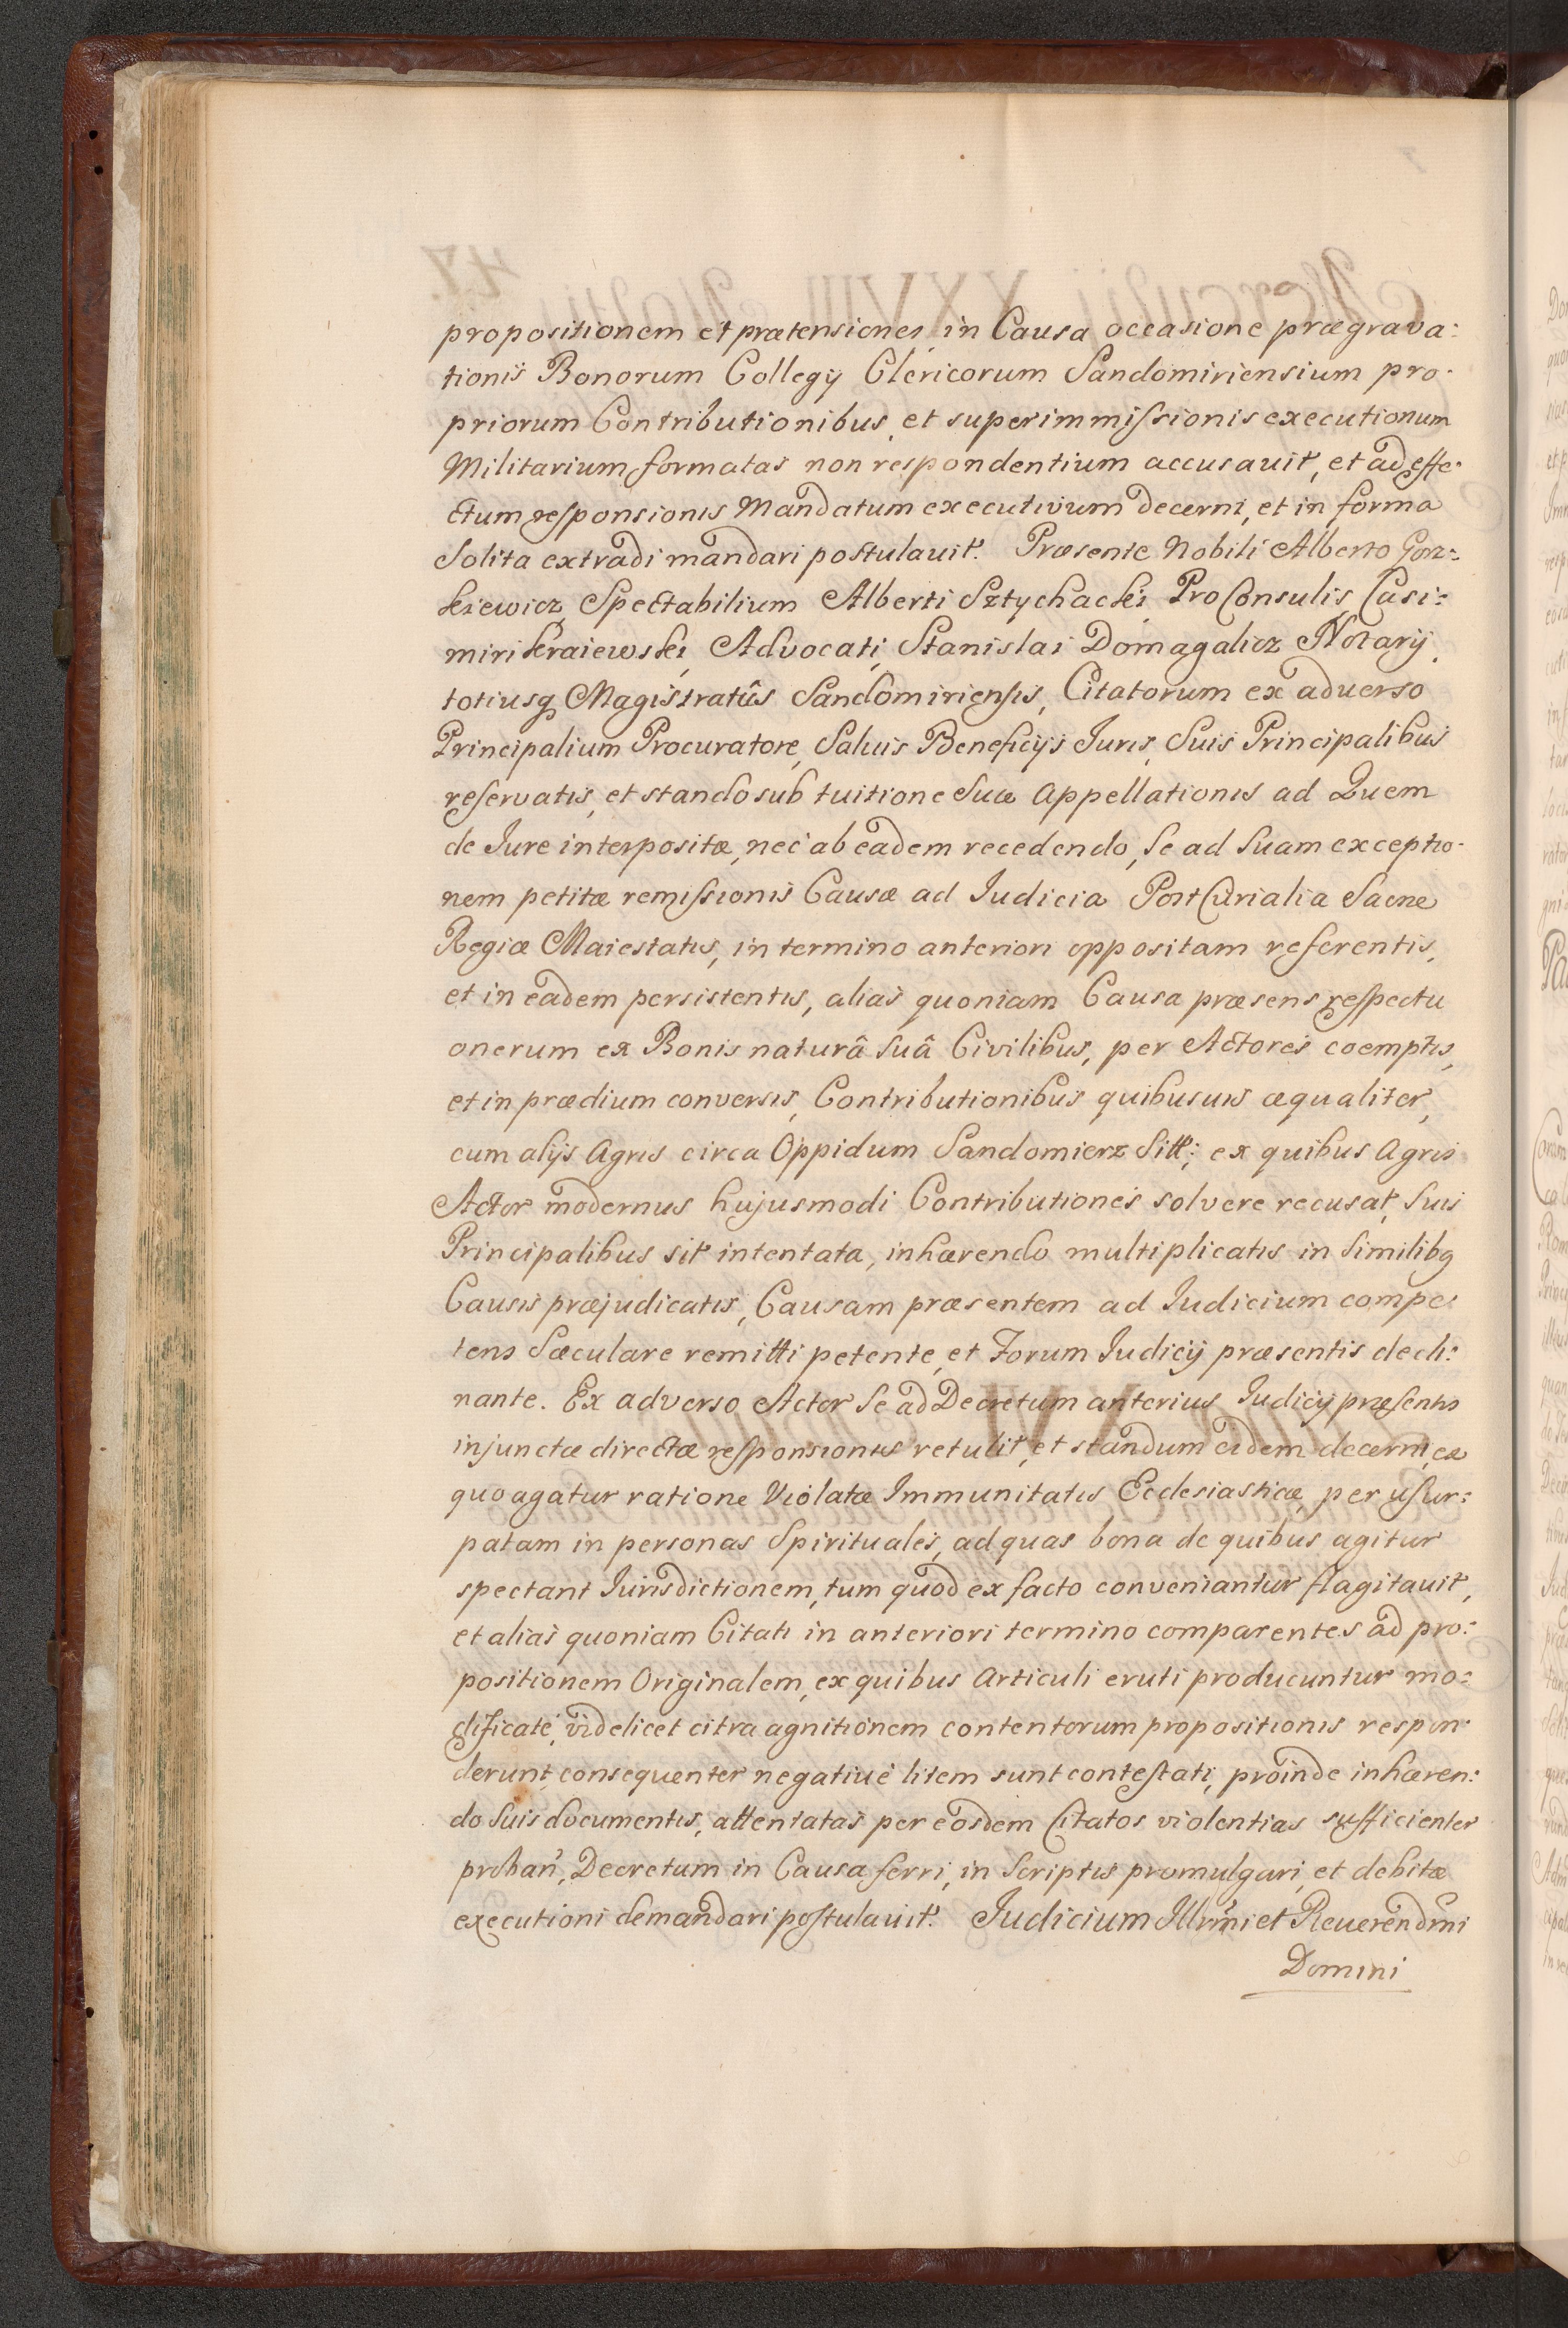 propositionem et prætensiones in Causa occasione prægrava:
tionis Bonorum Collegij Clericorum Sandomiriensium pro-
priorum Contributionibus, et superimmissionis executionum
Militarium formatas non respondentium accusauit, et ad effe-
ctum responsionis Mandatum executivum decerni, et in forma
Solita extradi mandari postulauit. Præsente Nobili Alberto Gorz:
kiewicz, Spectabilium Alberti Sztychacki, ProConsulis, Casi:
miri Kraiewski, Advocati, Stanislai Domagalicz Notarij,
totiusq Magistratûs Sandomiriensis, Citatorum ex aduerso
Principalium Procuratore, Saluis Beneficijs Iuris, Suis Principalibus
reservatis, et stando sub tuitione Suæ Appellationis ad Quem
de Iure interpositæ, nec ab eadem recedendo, Se ad Suam exceptio-
nem petitæ remissionis Causæ ad Iudicia PostCurialia Sacræ
Regiæ Maiestatis, in termino anteriori oppositam referentis,
et in eadem persistentis, alias quoniam Causa præsens respectu
onerum ex Bonis naturâ Suâ Civilibus, per Actores coemptis,
et in prædium conversis, Contributionibus quibusuis æqualiter,
cum alijs Agris circa Oppidum Sandomierz Sitt; ex quibus Agris
Actor modernus hujusmodi Contributiones solvere recusat, Suis
Principalibus sit intentata, inhærendo multiplicatis in Similibq
Causis præjudicatis, Causam præsentem ad Iudicium compe:
tens Sæculare remitti petente, et Forum Iudicij præsentis decli:
nante. Ex adverso Actor Se ad Decretum anterius Iudicij præsentis
injunctæ directæ responsionis retulit, et standum eidem decerni, ex
quo agatur ratione Violatæ Immunitatis Ecclesiasticæ, per usur:
patam in personas Spirituales, ad quas bona de quibus agitur
spectant Iurisdictionem, tum quod ex facto conveniantur flagitauit,
et alias quoniam Citati in anteriori termino comparentes ad pro:
positionem Originalem, ex quibus Articuli eruti producuntur mo:
dificatè, videlicet citra agnitionem contentorum propositionis respon:
derunt consequenter negativè litem sunt contestati, proinde inhæren:
do Suis documentis, attentatas per eosdem Citatos violentias sufficienter
proban, Decretum in Causa ferri, in Scriptis promulgari, et debitæ
executioni demandari postulauit. Judicium Illrmi et Reuerendmi
Domini